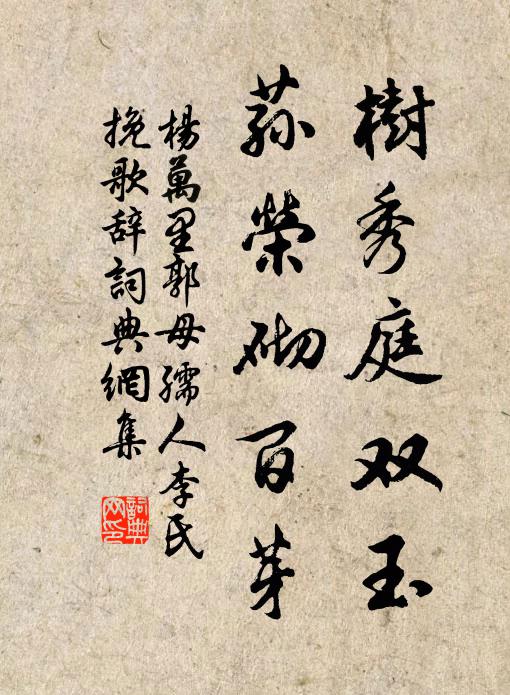 樹秀庭双玉
蓀榮砌百芽
楊萬里郭母孺人李氏
挽歌辞詞典網集
詞典網印